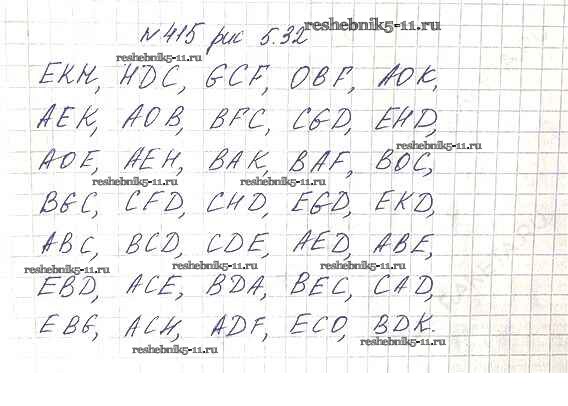 №415 рис 5.32
reshebnik5-11.ru
reshebnik5-11.ru
EKH, HDC, GCF, OBF, AOK,
AEK, AOB, BFC, CGD, EHD,
reshebnik5-11.ru
AOE, AEH, BAK, BAF, BOC,
reshebnik5-11.ru reshebnik5-11.ru
BGC, CFD, CHD, EGD, EKD,
ABC, BCD, CDE, AED, ABE,
reshebnik5-11.ru reshebnik5-11.ru reshebnik5-11.ru
EBD, ACE, BDA, BEC, CAD,
EBG, ACH, ADF, ECO, BDK.
reshebnik5-11.ru reshebnik5-11.ru